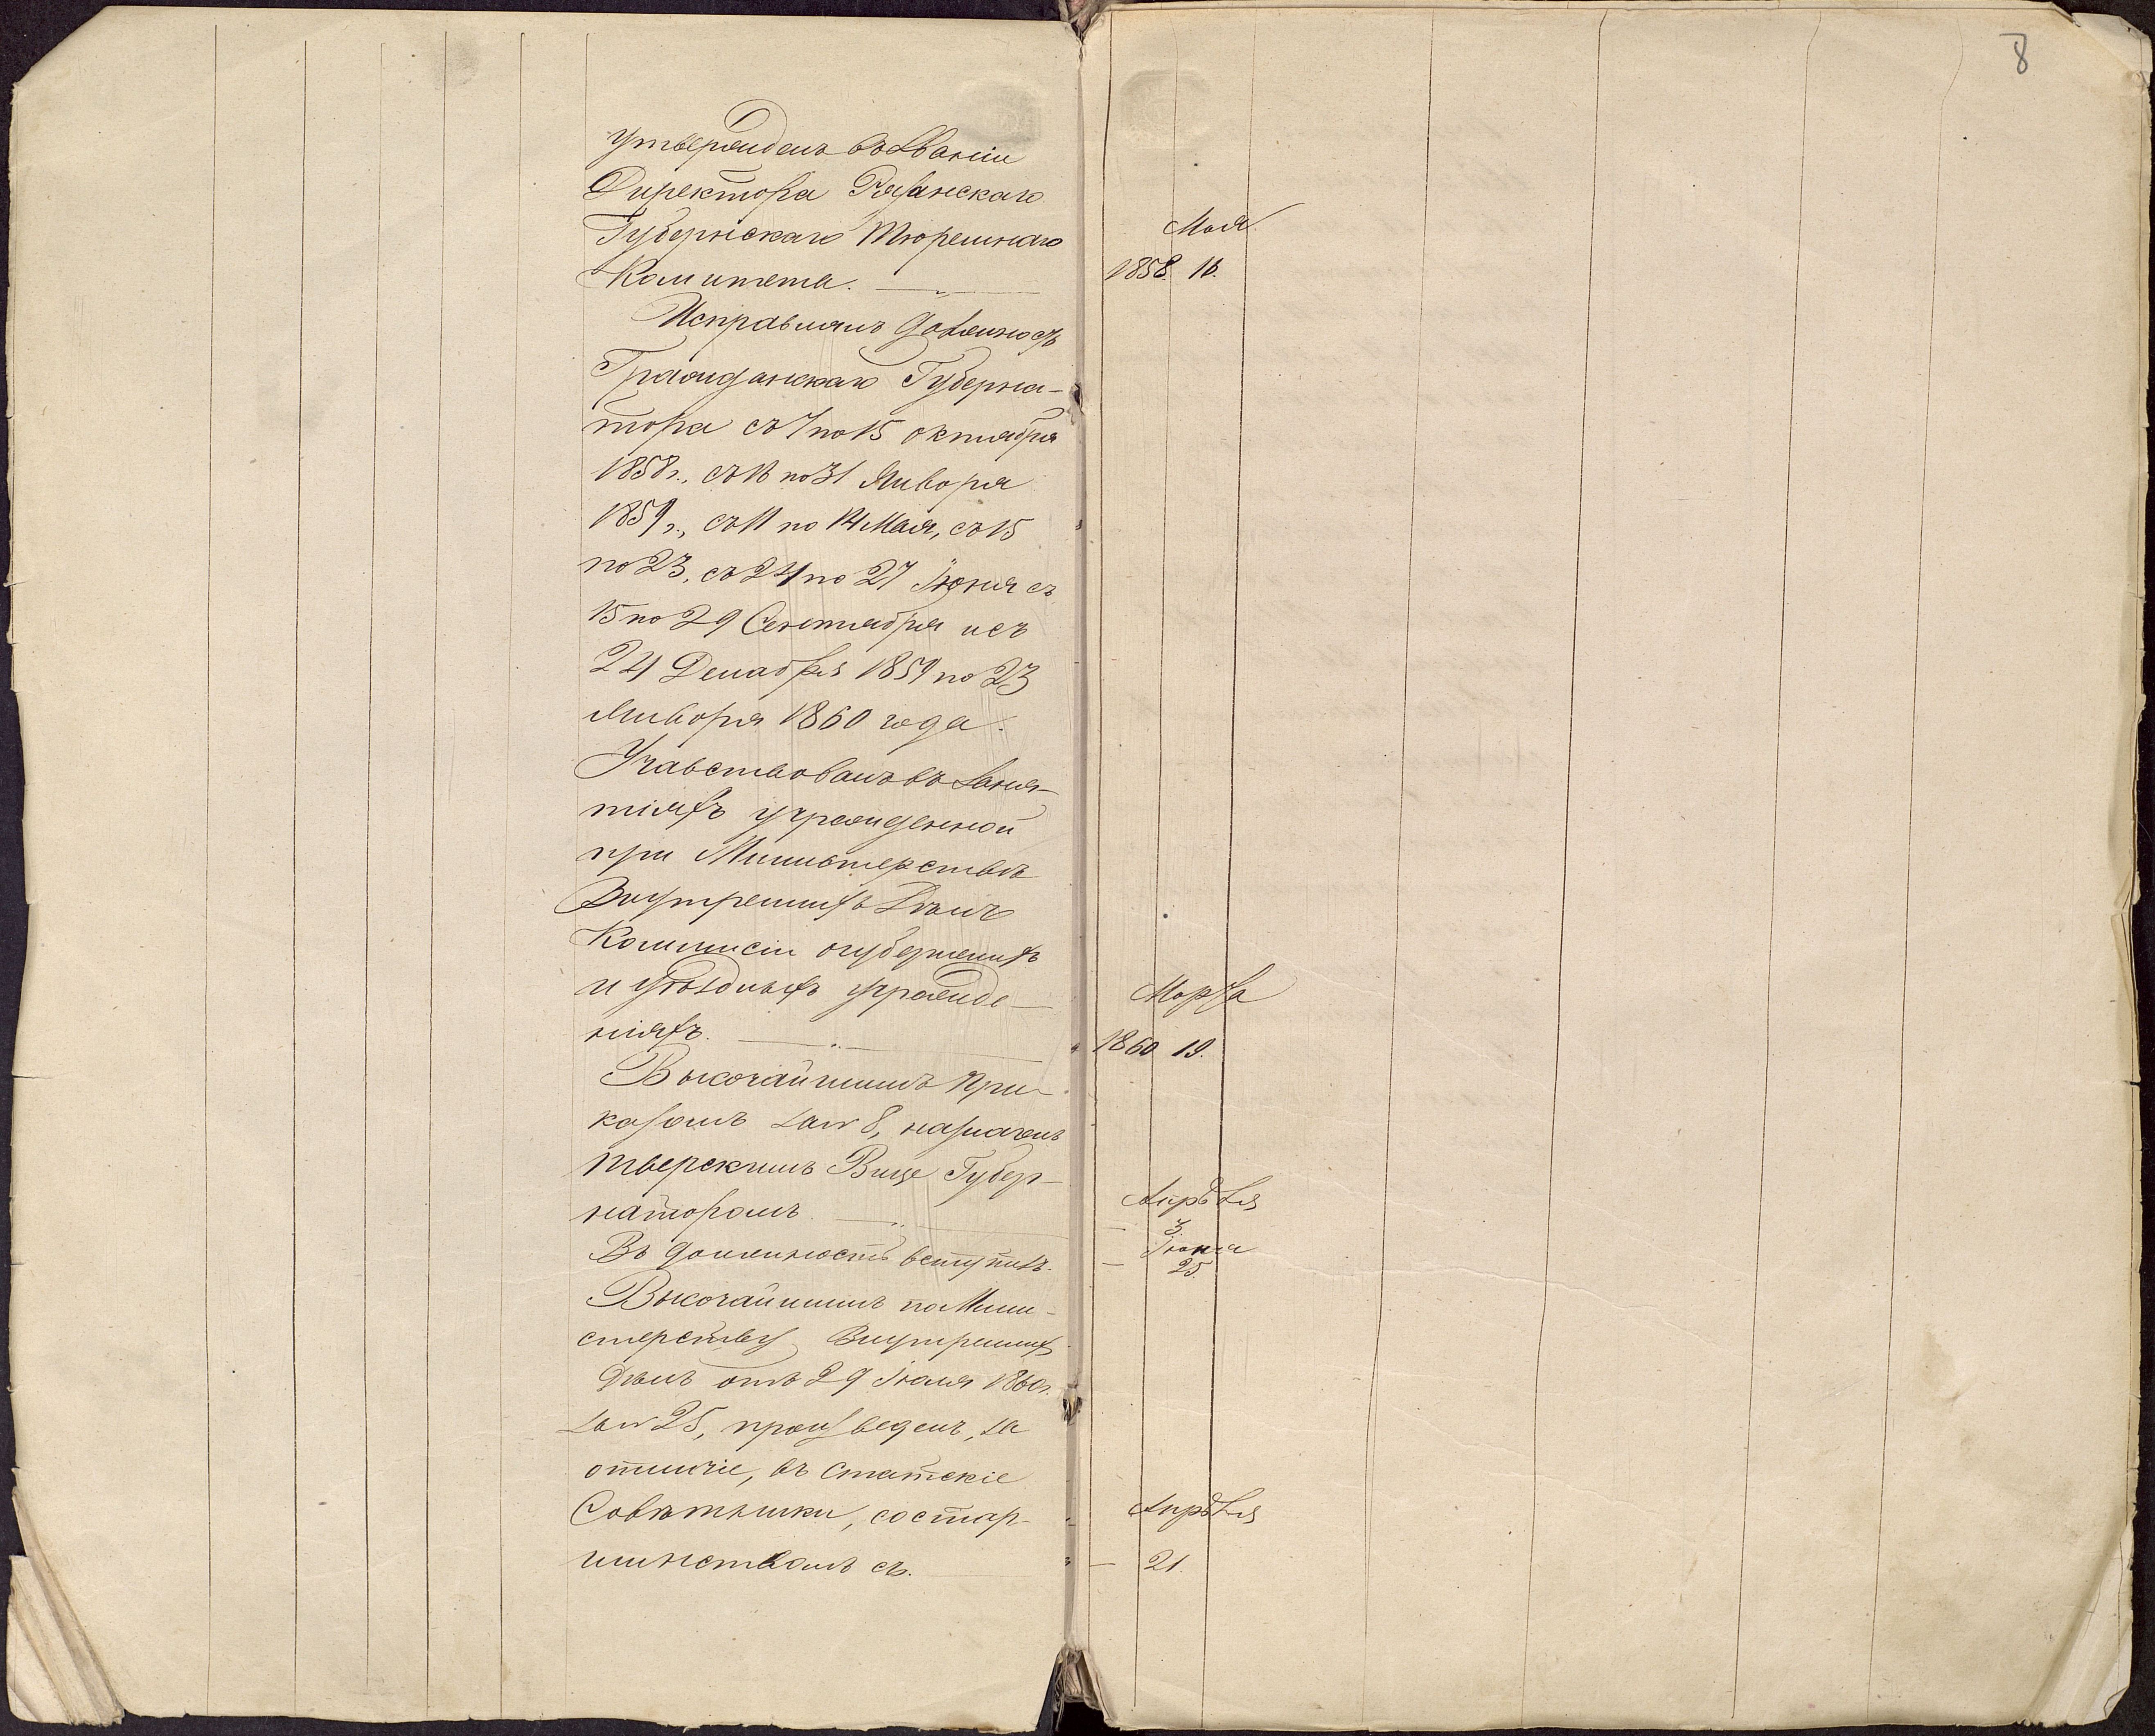 8
Утвержденъ въ званіи
Директора Рязанскаго
Губернскаго Тюремнаго
Комитета.
Мая
1858. 16.
Исправлялъ должность
Гражданскаго Губерна-
тора съ 7 по 15 октября
1858 г., съ 16 по 31 Января
1859 г., съ 11 по 14 Мая, съ 15
по 23, съ 24 по 27 Іюня съ
15 по 29 Сентября и съ
24 Декабря 1859 по 23
Января 1860 года.
Участвовалъ въ заня-
тіяхъ учрежденной
при Министерствѣ
Внутреннихъ Дѣлъ
Коммисіи о губернскихъ
и уѣздныхъ учрежде-
ніяхъ.
Марта
1860 19.
Высочайшимъ при-
казомъ за № 8, назначенъ
Тверскимъ Вице Губер-
наторомъ.
Апрѣля
— 3.
Въ должность вступилъ.
Іюня
— 25.
Высочайшимъ по Мини-
стерству Внутреннихъ
Дѣлъ отъ 29 Іюля 1860 г.
за № 25, произведенъ, за
отличіе, въ Статскіе
Совѣтники, со стар-
шинствомъ съ.
Апрѣля
— 21.